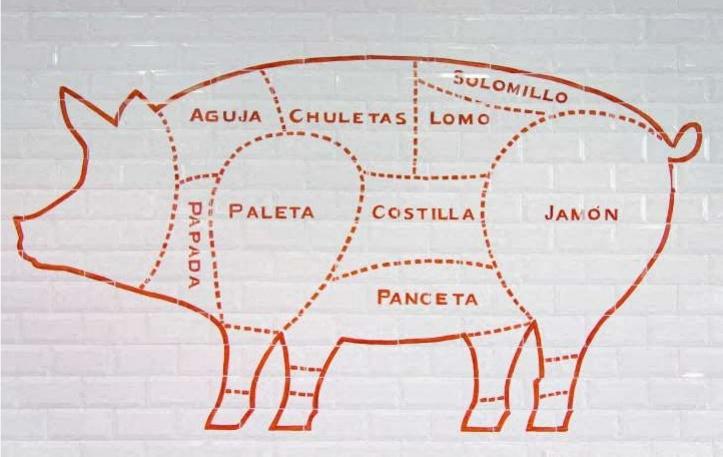 SOLOMILLO
AGUJA
CHULETAS
LOMO
PAPADA
PALETA
COSTILLA
JAMÓN
PANCETA